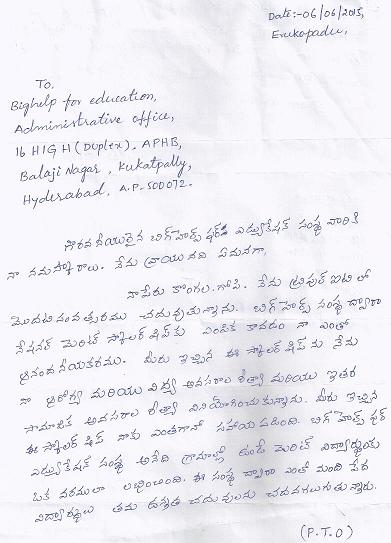 Date:-06/06/2015,
Erukopadu,
To,
Bighelp for education,
Administrative office,
16 HIG H (Duplex). APHB,
Balaji Nagar, Kukatpally,
Hyderabad, A.P-500072.
గౌరవనీయులైన బిగ్ హెల్ప్ ఫర్ ఎడ్యుకేషన్ సంస్థ వారికి
నా నమస్కారాలు. నేను వ్రాయునది ఏమనగా,
నాపేరు కొంగల.గోపి. నేను ట్రిపుల్ ఐటి లో
మొదటి సంవత్సరము చదువుతున్నాను. బిగ్ హెల్ప్ సంస్థ ద్వారా
నేషనల్ మెరిట్ స్కాలర్ షిప్ కు ఎంపిక కావడం నా ఎంతో
ఆనందదీయకరము. మీరు ఇచ్చిన ఈ స్కాలర్ షిప్ ను నేను
నా ఆరోగ్య మరియు విద్య అవసరాల రీత్యా మరియు ఇతర
సామాజిక అవసరాల రీత్యా వినియోగించుకున్నాను. మీరు ఇచ్చిన
ఈ స్కాలర్ షిప్ నాకు ఎంతగానో సహాయపడింది. బిగ్ హెల్ప్ ఫర్
ఎడ్యుకేషన్ సంస్థ అనేది గ్రామాల్లో ఉండే మెరిట్ విద్యార్థులకు
ఒక వరములా లభించింది. ఈ సంస్థ ద్వారా ఎంతో మంది పేద
విద్యార్థులు తమ ఉన్నత చదువులను చదవగలుగుతున్నారు.
(P.T.O)